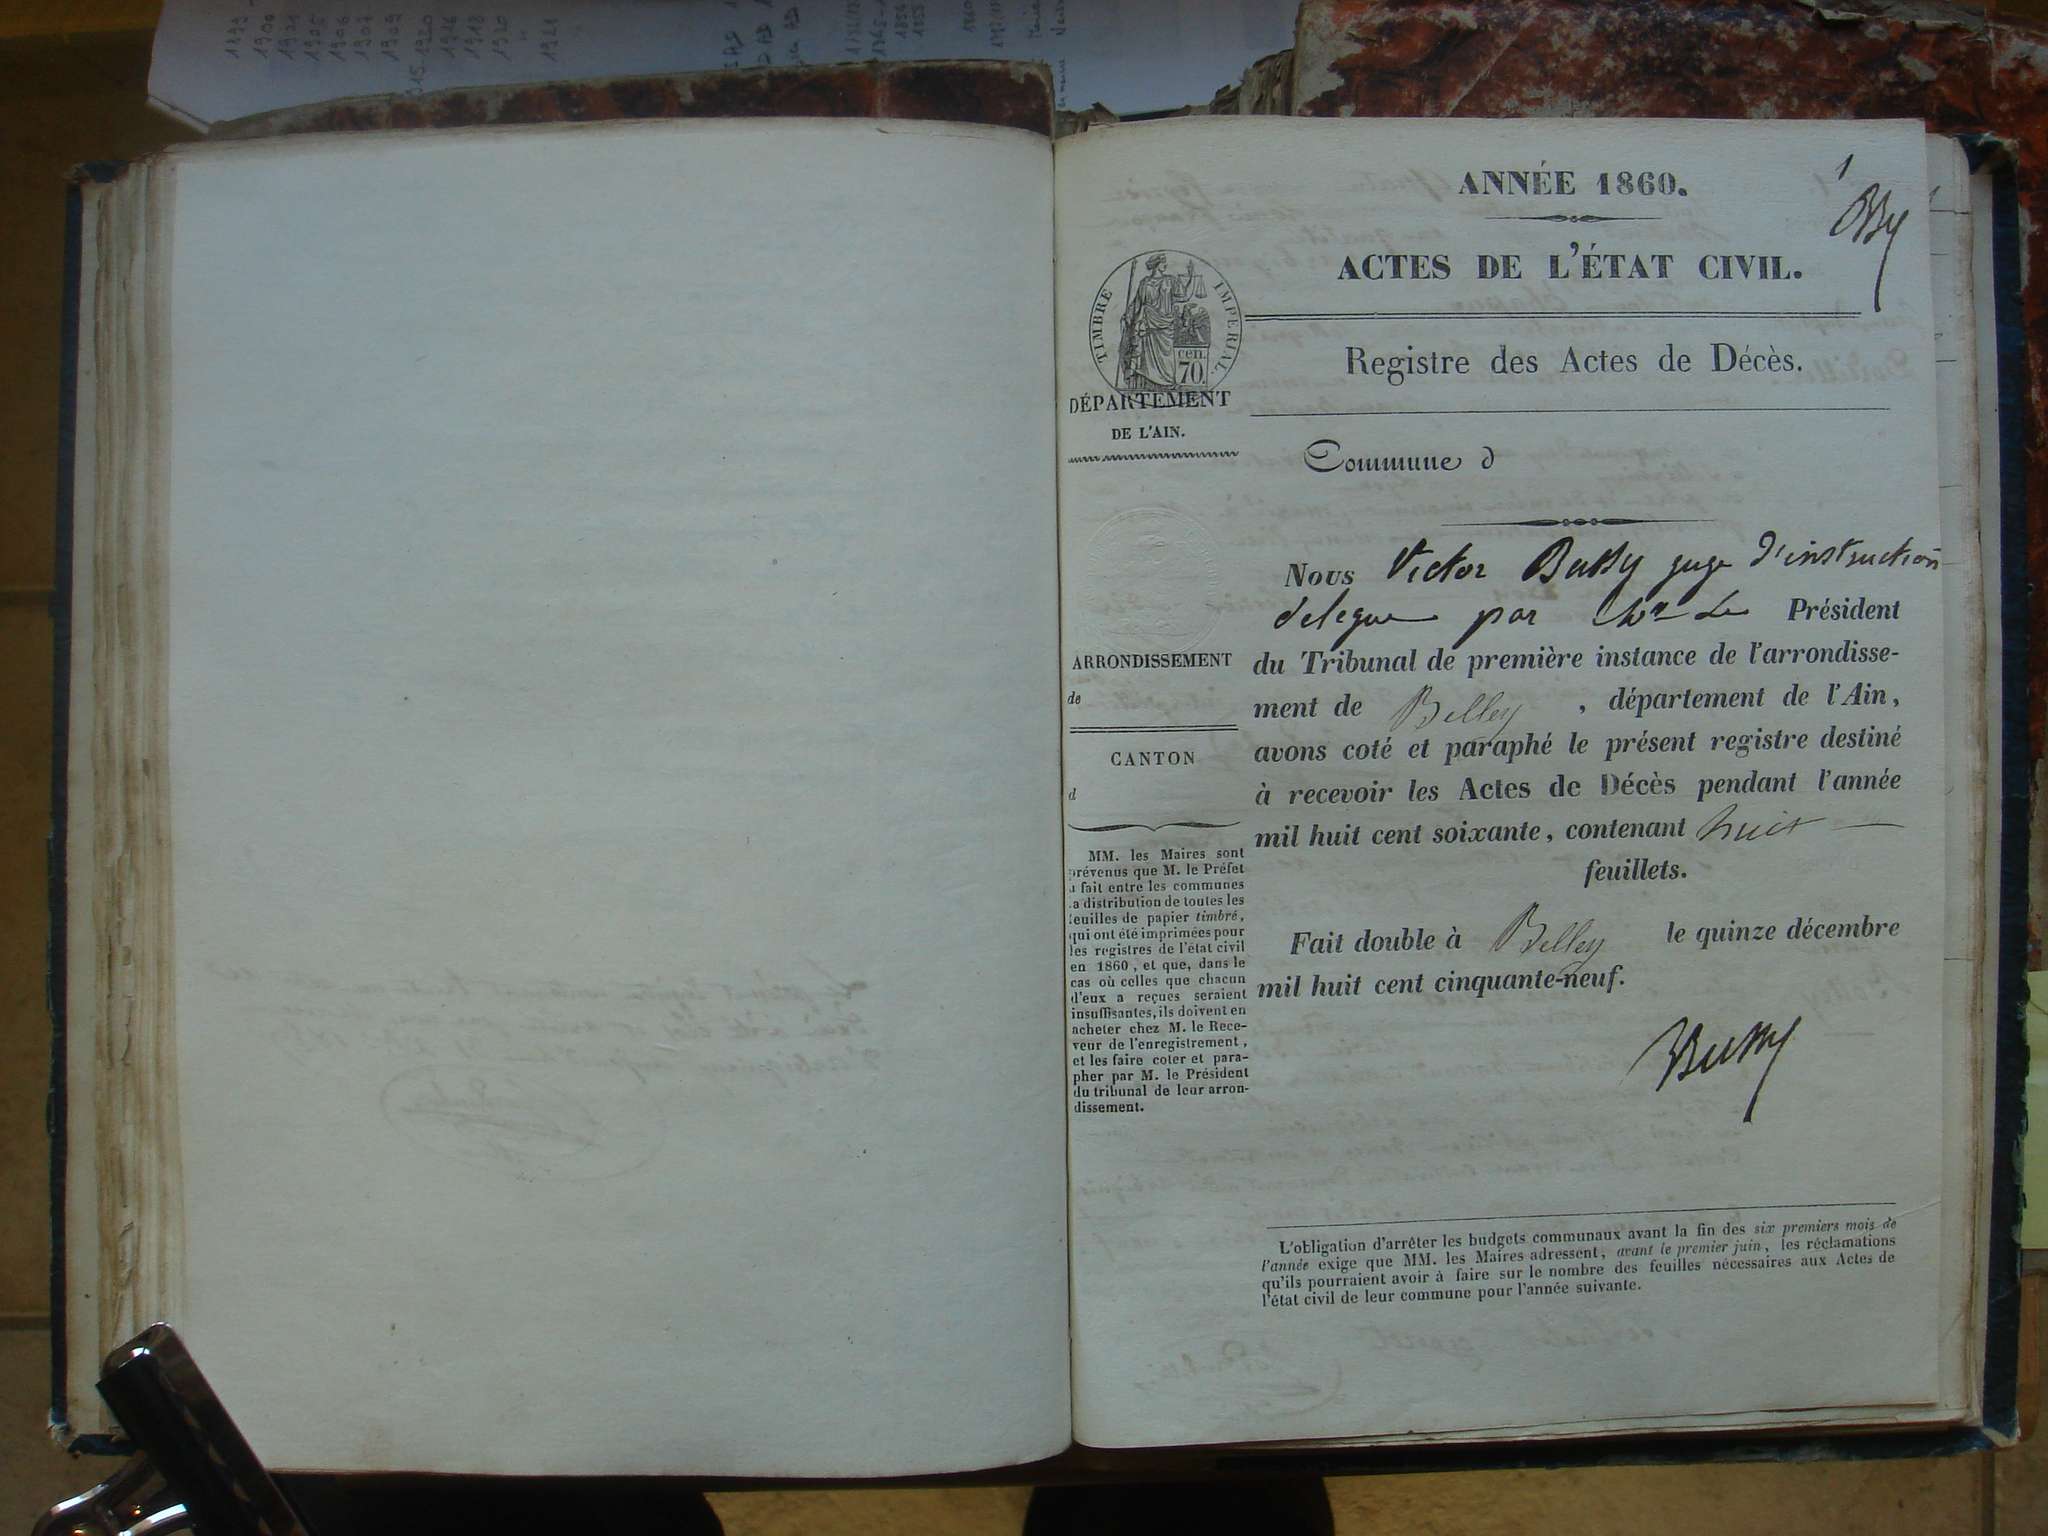 1
ANNÉE 1860.
ACTES DE L'ÉTAT CIVIL.
Registre des Actes de Décès.
TIMBRE IMPERIAL.
cen.
70.
DÉPARTEMENT
DE L'AIN.
Commune d
ARRONDISSEMENT
de
CANTON
d
MM. les Maires sont
prévenus que M. le Préfet
a fait entre les communes
la distribution de toutes les
feuilles de papier timbré,
qui ont été imprimées pour
les registres de l'état civil
en 1860, et que, dans le
cas où celles que chacun
d'eux a reçues seraient
insuffisantes, ils doivent en
acheter chez M. le Rece-
veur de l'enregistrement,
et les faire coter et para-
pher par M. le Président
du tribunal de leur arron-
dissement.
Nous Victor Bussy juge d'instruction
delegue par Mr Le Président
du Tribunal de première instance de l'arrondisse-
ment de Belley, département de l'Ain,
avons coté et paraphé le présent registre destiné
à recevoir les Actes de Décès pendant l'année
mil huit cent soixante, contenant huit
feuillets.
Fait double à Belley le quinze décembre
mil huit cent cinquante-neuf.
Bussy
L'obligation d'arrêter les budgets communaux avant la fin des six premiers mois de
l'année exige que MM. les Maires adressent, avant le premier juin, les réclamations
qu'ils pourraient avoir à faire sur le nombre des feuilles nécessaires aux Actes de
l'état civil de leur commune pour l'année suivante.